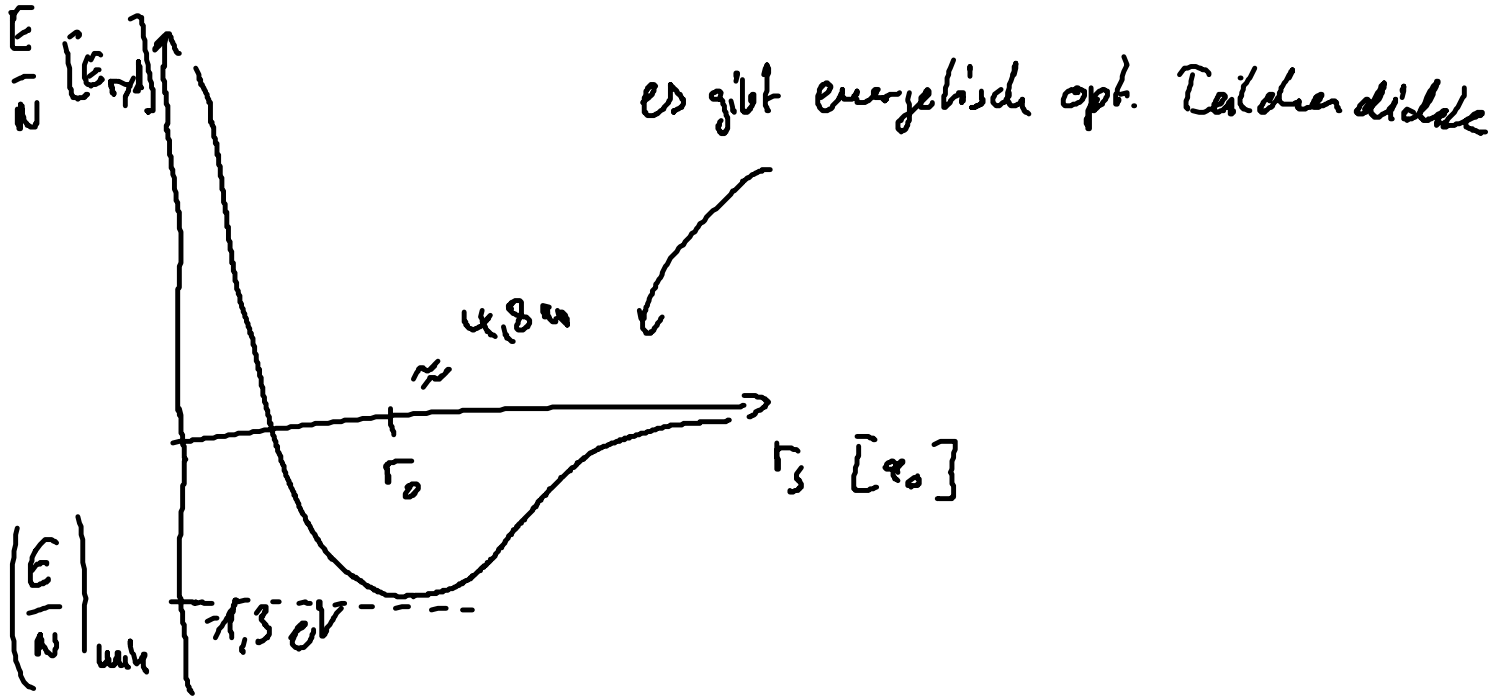 E/N [E_ry]
es gibt energetisch opt. Teilchendichte
≈ 4,8 a₀
r₀
r_s [a₀]
(E/N)_min
-1,3 eV